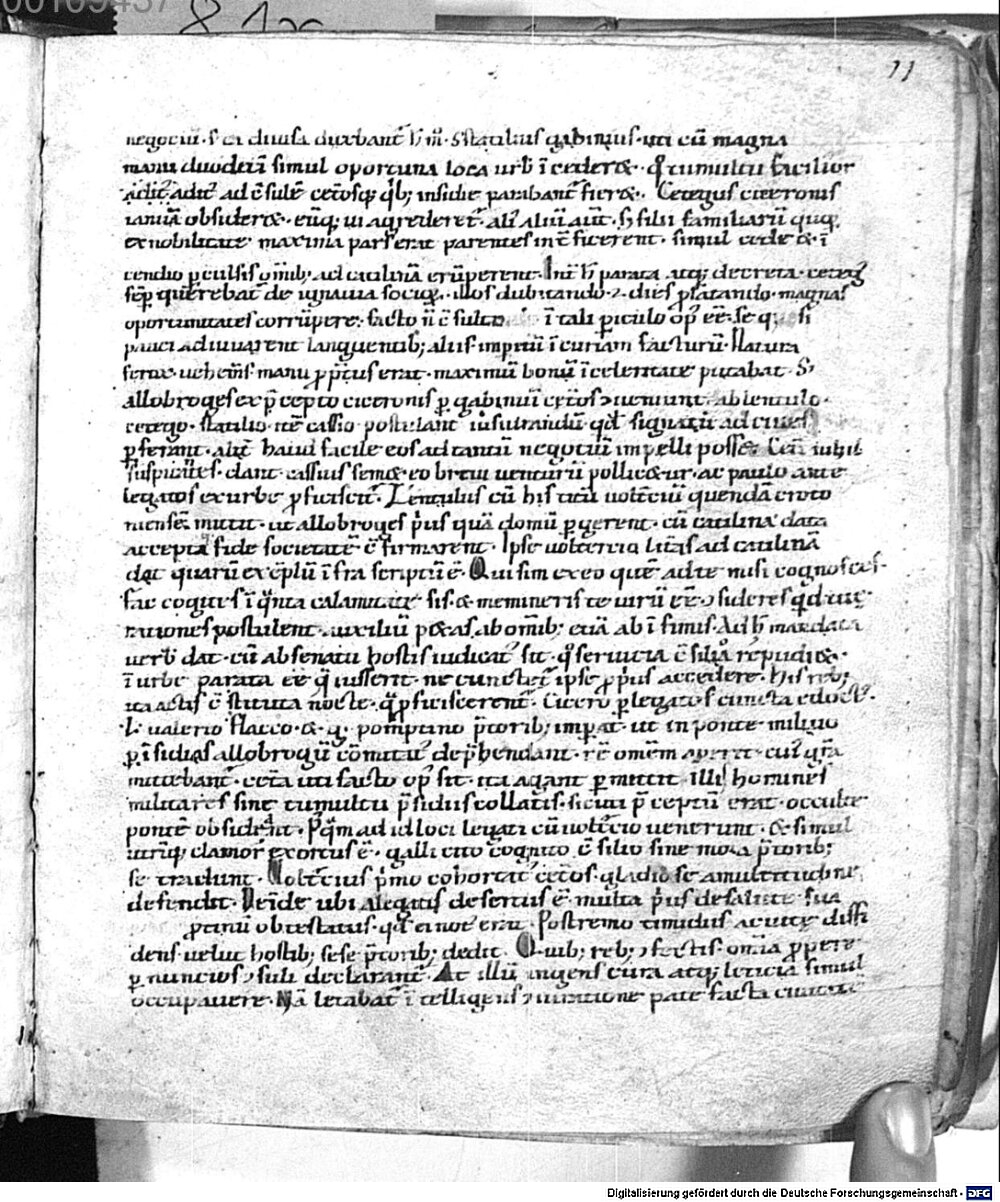 11
negociu · s; ea diuisa ducebant᷑ h̄ m̄ · Statilius gabinius · uti cū magna
manu duodeci simul oportuna loca urb̄ īcederet · q̊ tumultu facilior
adit᷑ ad c̄sulē cet̄osq; qb; insidie parabant᷑ fieret · Cetegus ciceronis
ianuā obsideret · eūq; ui agrederet᷑ · ali᷑ aliū aūt · S; filii familiarū quoq;
ex nobilitate maxima pars erat parentes int̄ficerent · simul cede & ī
cendio ꝑculsis om̄ib; ad catilinā erūperent · Int̄ h̄ parata atq; decreta · cetegꝰ
sēp querebat᷑ de ignauia socioꝝ · illos dubitando · & dies ꝓlatando · magnas
oportunitates corrūpere · facto n̄ c̄sulto ī tali ꝑiculo opꝰ eē · se q; si
pauci adiuuarent languentib; aliis impetū ī curiam facturū · Natura
ferox uehem̄s manu prōptus erat · maximū bonū ī celeritate putabat · S;
allobroges ex p̄cepto ciceronis ꝑ gabiniū cet̄os ꝯueniunt · ab lentulo ·
cetego · statilio · itē cassio postulant iusiurandū qd̄ signatū ad ciues
ꝑferant · alit̄ haud facile eos ad tantū negotiū impelli posse · Cet̄i nihil
suspicantes · dant · cassius semet eo breui uenturū pollicetur · ac paulo ante
legatos ex urbe ꝓficiscit᷑ · Lentulus cū his titū uolt̄ciū quendā croto
niensē mittit · ut allobroges p̄us quā domū ꝑgerent · cū catilina data
accepta fide societatē c̄firmarent · Ipse uoltercio litt̄as ad catilinā
dat quarū exēplū īfra scriptū ē · Qui sim ex eo quē ad te misi cognosces ·
fac cogites ī q̄nta calamitate sis · & memineris te uirū eē · ꝯsideres qd̄ tue
rationes postulent · auxiliū petas ab omīb; etiā ab īfimis · Ad h̄ mandata
uerb̄ dat · cū ab senatu hostis iudicatꝰ sit · q̊ seruitia c̄silio repudiet ·
ī urbe parata eē q̄ iusserit · ne cunctet᷑ ipse ꝓpius accedere · His reb;
ita actis c̄stituta nocte · q̄ ꝓficiscerent᷑ · Cicero ꝑ legatos cuncta edoctꝰ ·
l · ualerio flacco & · g · pomptino p̄torib; imꝑat · ut in ponte miluio
ꝑ īsidias allobrogū comitatꝰ dep̄hendant · rē omēm aperit · cuiꝰ grā
mittebant᷑ · cet̄a uti facto opꝰ sit · ita agant ꝑmittit · illi homines
militares sine tumultu p̄sidiis collatis · sicuti p̄ceptū erat · occulte
pontē obsident · Pꝰq̄m ad id loci legati cū uolt̄cio uenerunt · & simul
utriq; clamor exortus ē · galli cito cognito c̄silio sine mora p̄torib;
se tradunt · Uolt̄cius p̄mo cohortatꝰ cet̄os · gladio se a multitudine
defendit · Deīde ubi a legatis desertus ē · multa p̄us de salute sua
protinū obtestatus · qd̄ ei notꝰ erat · Postremo timidus ac uitę diffi
dens uelut hostib; sese p̄torib; dedit · Quib; reb; ꝯfectis · omīa ꝓpere
ꝑ nuncios ꝯsuli declarant᷑ · At illū ingens cura atq; leticia simul
occupauere · Nā letabat᷑ ītelligens ꝯiuratione patefacta ciuitatē
Digitalisierung gefördert durch die Deutsche Forschungsgemeinschaft · DFG